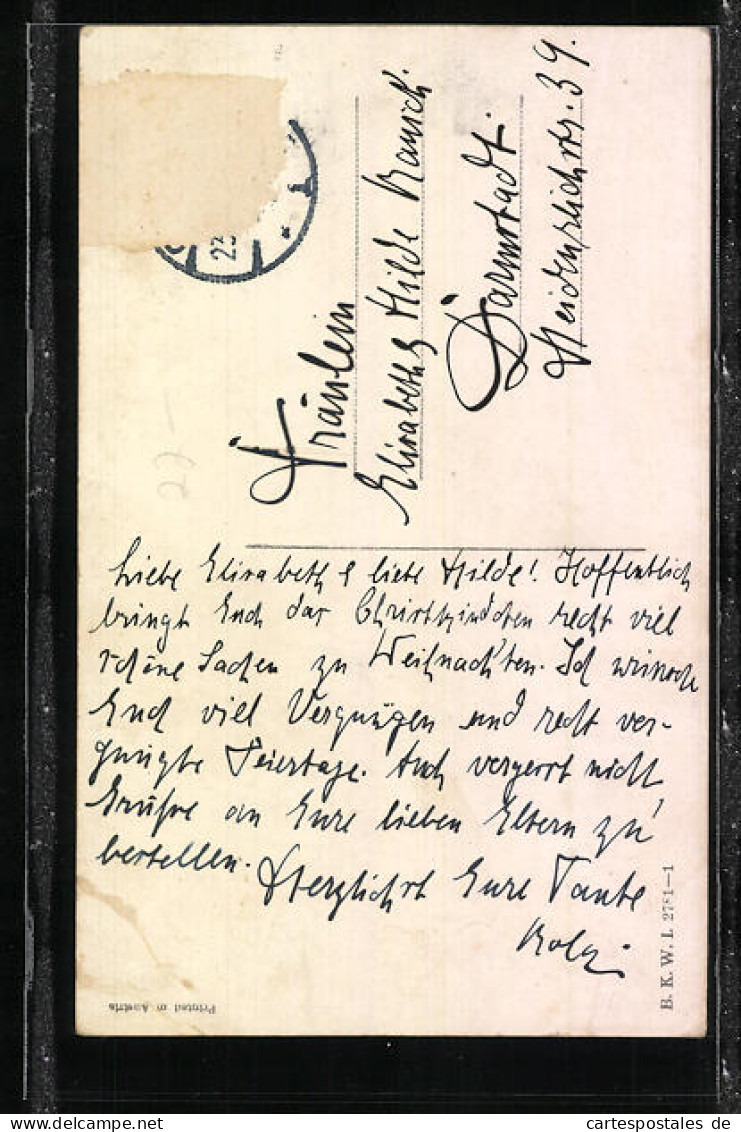 23
Fräulein
Elisabeth & Hilde
Darmstadt.
Heidenreichstr. 39.
27-
Liebe Elisabeth & liebe Hilde! Hoffentlich
bringt Euch das Christkindchen recht viel
schöne Sachen zu Weihnachten. Ich wünsche
Euch viel Vergnügen und recht ver-
gnügte Feiertage. Auch vergesst nicht
Grüsse an Eure lieben Eltern zu
bestellen. Herzlichst Eure Tante
B. K. W. I. 2781-1
Printed in Austria
cartespostales de